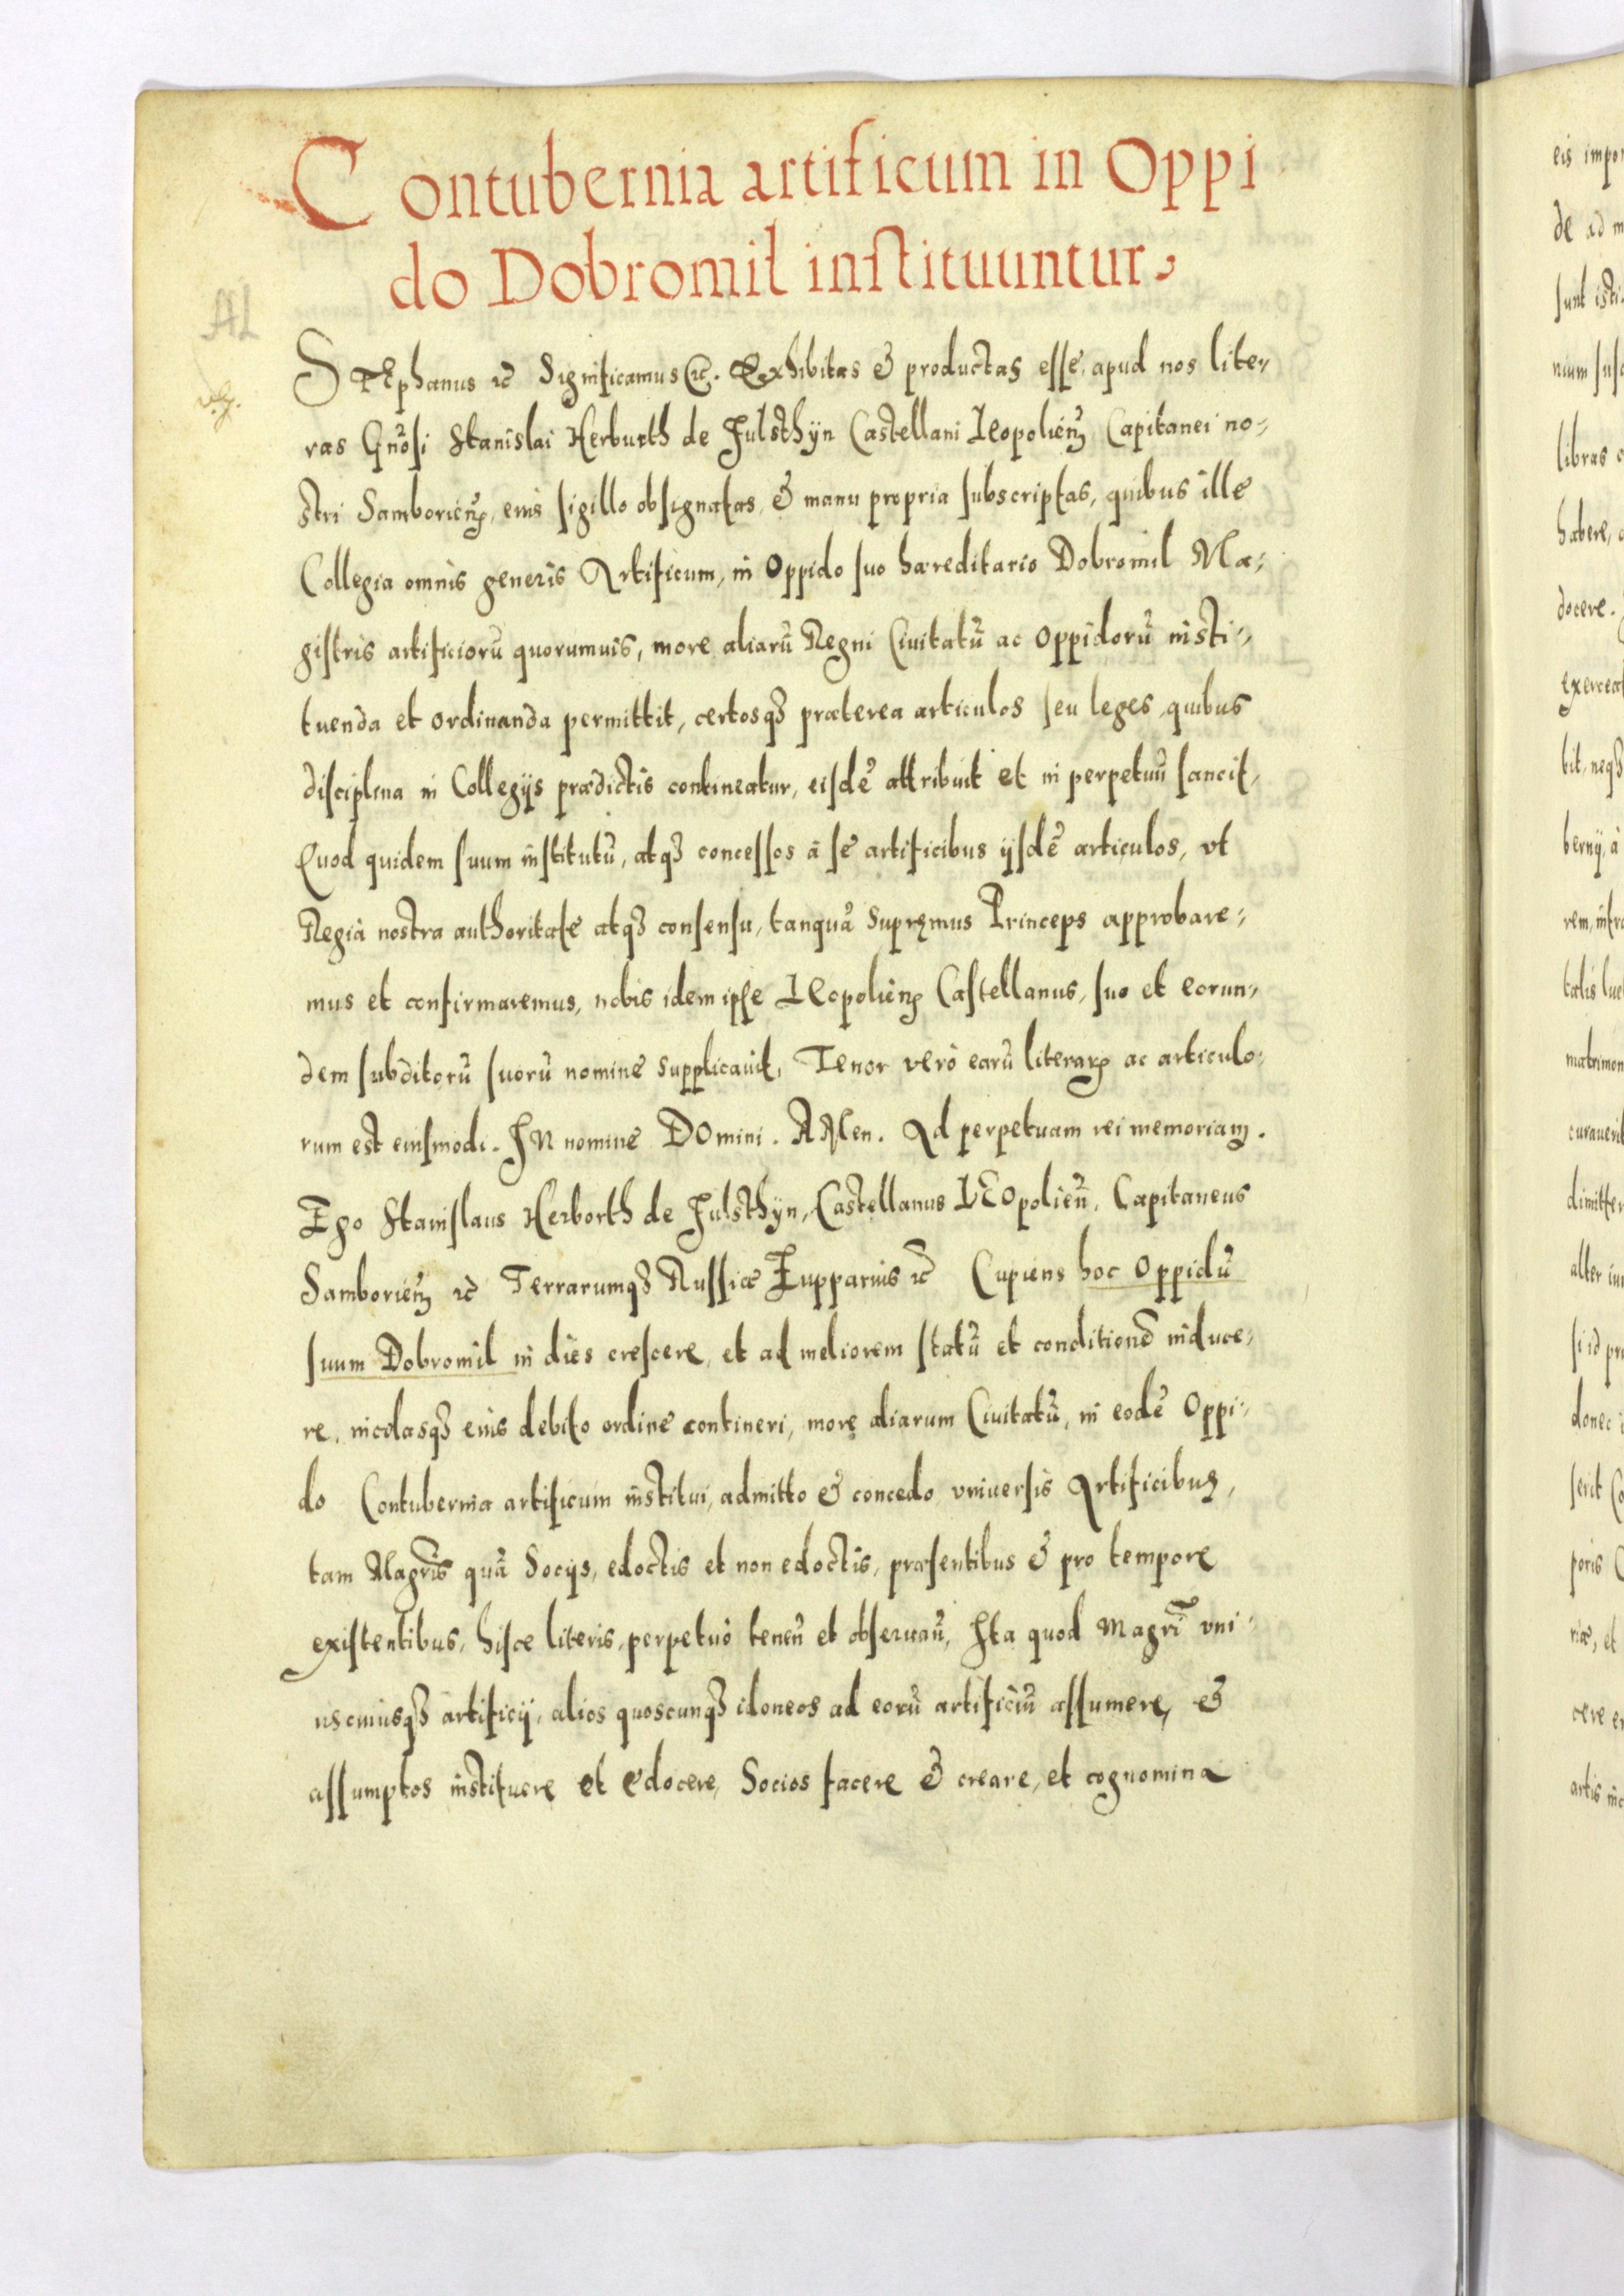 Contubernia artificum in Oppi
do Dobromil instituuntur.
AL
STEphanus etc Significamus etc. Exhibitas & productas esse, apud nos lite,
ras Gnosi Stanislai Herburth de Fulsthÿn Castellani Leopolien̄ Capitanei no,
stri Samborien̄, eius sigillo obsignatas, & manu propria subscriptas, quibus ille
Collegia omnis generis Artificum, in Oppido suo hæreditario Dobromil Ma,
gistris artificiorū quorumuis, more aliarū Regni Ciuitatū ac Oppidorū insti,
tuenda et ordinanda permittit, certosq̃ præterea articulos seu leges, quibus
disciplina in Collegijs prædictis contineatur, eisdē attribuit et in perpetuū sancit,
Quod quidem suum institutū, atq̃ concessos à se artificibus ijsdē articulos, vt
Regià nostra authoritate atq̃ consensu, tanquā Supręmus Princeps approbare,
mus et confirmaremus, nobis idem ipse LEopolien̄ Castellanus, suo et eorun,
dem subditorū suorū nomine supplicauit, Tenor verò earū literarꝝ ac articulo,
rum est eiusmodi. IN nomine DOmini. AMen. Ad perpetuam rei memoriam.
Ego Stanislaus Herborth de Fulsthÿn, Castellanus LEOpolien̄, Capitaneus
Samborien̄ etc Terrarumq̃ Russiæ Zupparius etc Cupiens hoc Oppidū
suum Dobromil in dies crescere, et ad meliorem statū et conditionē induce,
re, incolasq̃ eius debito ordine contineri, morę aliarum Ciuitatū, in eodē Oppi,
do Contubernia artificum institui, admitto & concedo vniuersis Artificibus,
tam Magr̄is quā Socijs, edoctis et non edoctis, præsentibus & pro tempore
existentibus, hisce literis, perpetuò tenen̄ et obseruan̄, Ita quod Magr̄i vni,
uscuiusq̃ artificij, alios quoscunq̃ idoneos ad eorū artificiū assumere, &
assumptos instituere et edocere, Socios facere & creare, et cognomina